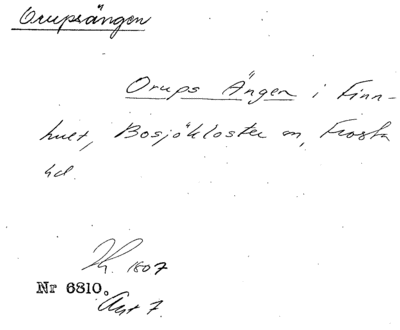 Orupsängen
Orups Ängen i Finn-
hult, Bosjökloster sn, Frosta
hd.
1807
Nr 6810.
Akt 7.